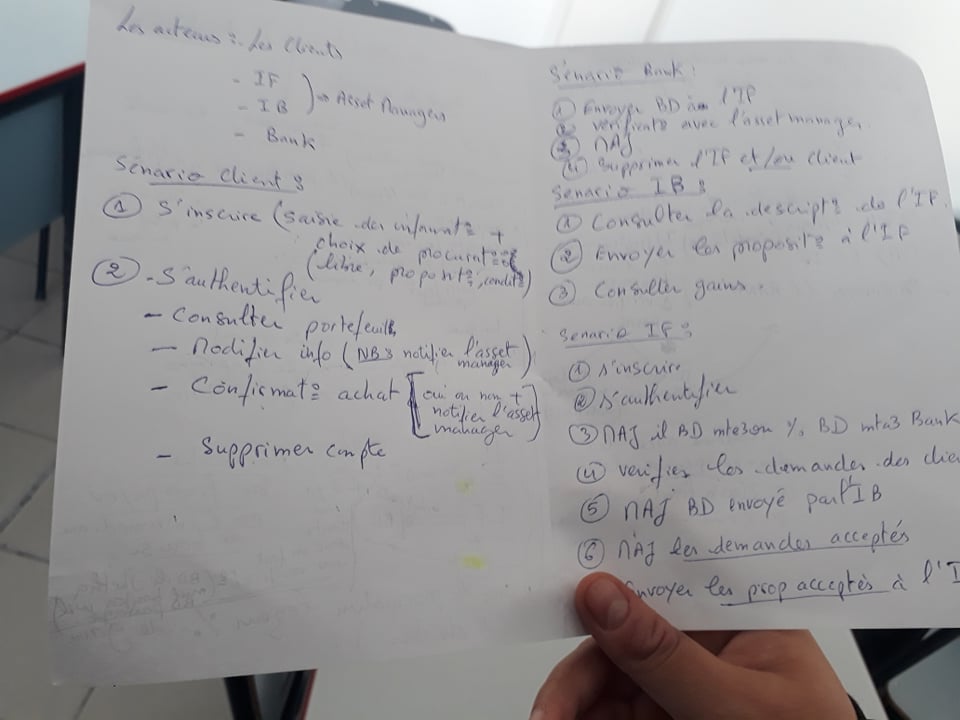 Les acteurs : Les Clients
- IF
- IB
) → Asset Managers
- Bank
Sénario Client :
① S'inscrire (Saisie des informat° +
choix de procurat° :
(libre, proposit°, condit°)
② - S'authentifier
- Consulter portefeuille
- Modifier info (NB: notifier l'asset
manager)
- Confirmat° achat [oui ou non +
notifier l'asset
manager]
- Supprimer compte
Sénario Bank :
① Envoyer BD à l'IF
② vérificat° avec l'asset manager
③ MAJ
④ Supprimer l'IF et/ou client
Senario IB :
① Consulter la descript° de l'IF
② Envoyer les proposit° à l'IF
③ Consulter gains.
Senario IF :
① S'inscrire
② S'authentifier
③ MAJ il BD mte3on % BD mta3 Bank
④ verifier les demandes des clie
⑤ MAJ BD envoyé par l'IB
⑥ MAJ les demandes acceptés
Envoyer les prop acceptés à l'I